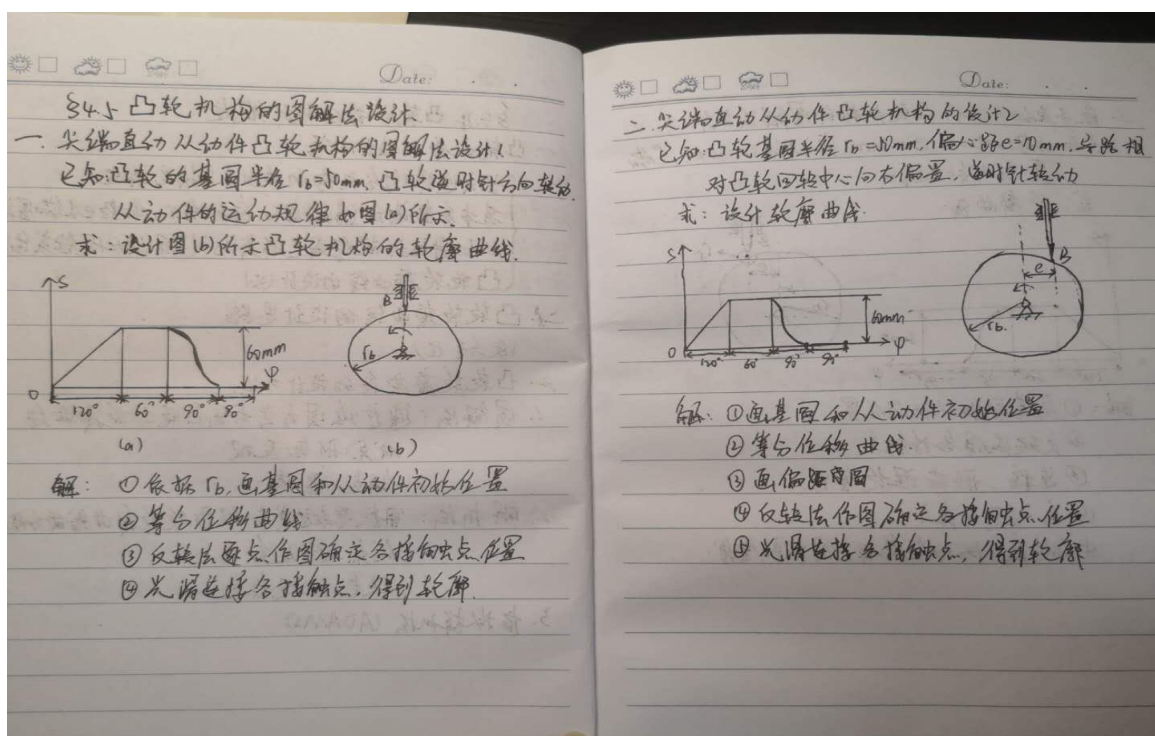 Date:
§4.5 凸轮机构的图解法设计
一. 尖端直动从动件凸轮机构的图解法设计1
已知:凸轮的基圆半径 rb=50mm, 凸轮逆时针方向转动
从动件的运动规律如图(a)所示.
求:设计图(b)所示凸轮机构的轮廓曲线.
S
60mm
φ
0
120° 60° 90° 90°
(a)
B
rb
(b)
解: ①依据 rb, 画基圆和从动件初始位置
②等分位移曲线
③反转法逐点作图确定各接触点位置
④光滑连接各接触点, 得到轮廓.
Date:
二. 尖端直动从动件凸轮机构的设计2
已知:凸轮基圆半径 rb=50mm, 偏心距e=10mm, 导路相
对凸轮回转中心向右偏置, 逆时针转动
求: 设计轮廓曲线.
S
60mm
φ
0
120° 60° 90° 90°
B
e
rb
解: ①画基圆和从动件初始位置
②等分位移曲线.
③画偏距圆
④反转法作图确定各接触点位置
⑤光滑连接各接触点, 得到轮廓